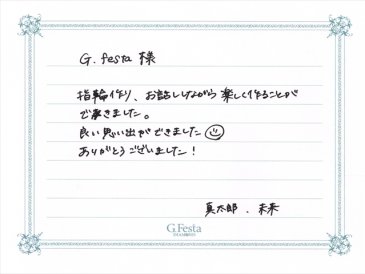 G. festa 様
指輪作り、お話ししながら楽しく作ることが
で来ました。
良い思い出ができました
ありがとうございました!
真太郎. 未来
G.Festa